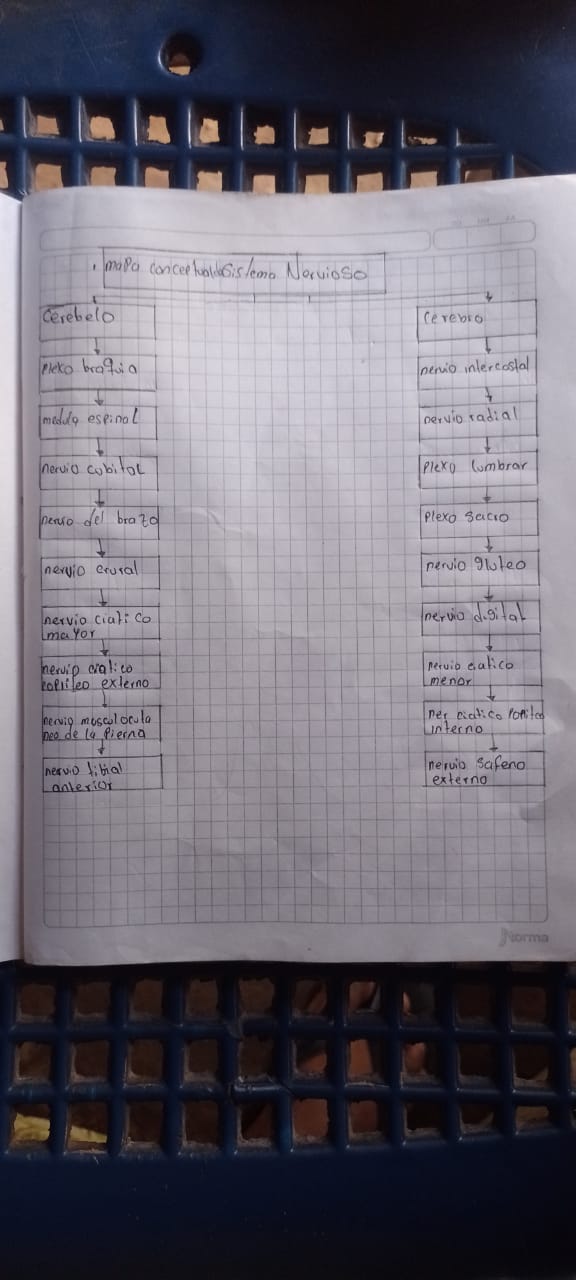 mapa conceptual del Sistema Nervioso
Cerebelo
plexo braquia
medula espinal
nervio cubital
nervio del brazo
nervio crusal
nervio ciatico
mayor
nervio ciatico
popliteo externo
nervio musculocula
neo de la Pierna
nervio tibial
anterior
Cerebro
nervio intercostal
nervio radial
Plexo lumbrar
Plexo Sacro
nervio gluteo
nervio digital
nervio ciatico
menor
ner ciatico Poplíteo
interno
nervio Safeno
externo
Norma